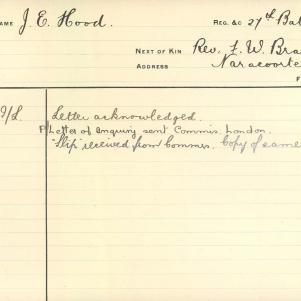 NAME J. E. Hood. REG. &c 27th Bat
NEXT OF KIN Rev. F. W. Bra
ADDRESS Naracoorte
Letter acknowledged.
Letter of enquiry sent Commis. London.
"Slip" received from Commis. Copy of same